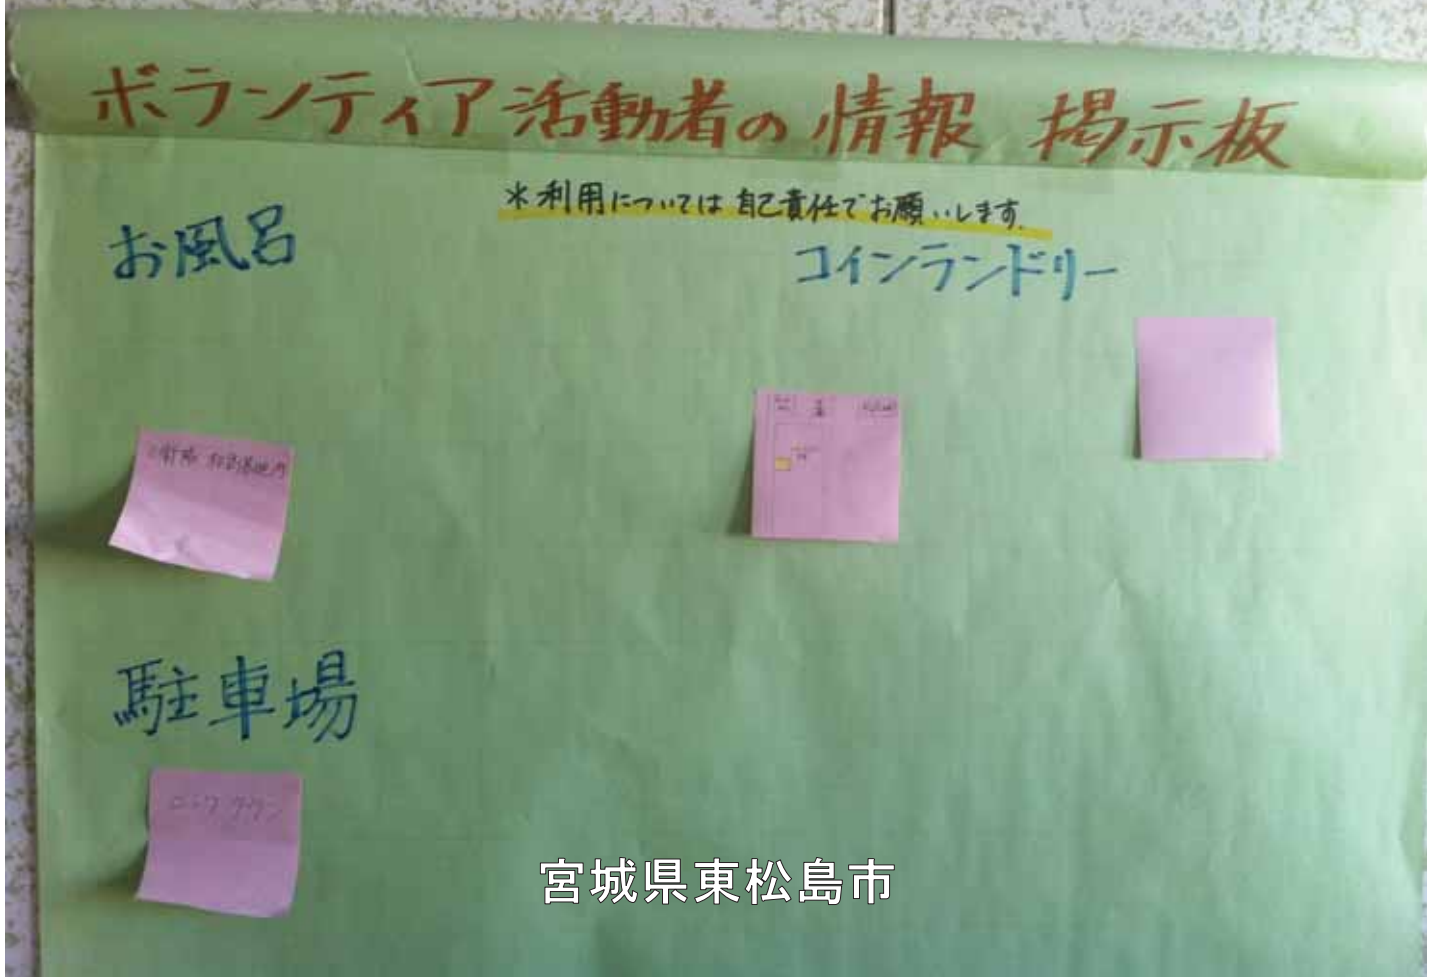 ボランティア活動者の情報 掲示板
*利用については自己責任でお願いします。
お風呂
コインランドリー
駐車場
宮城県東松島市